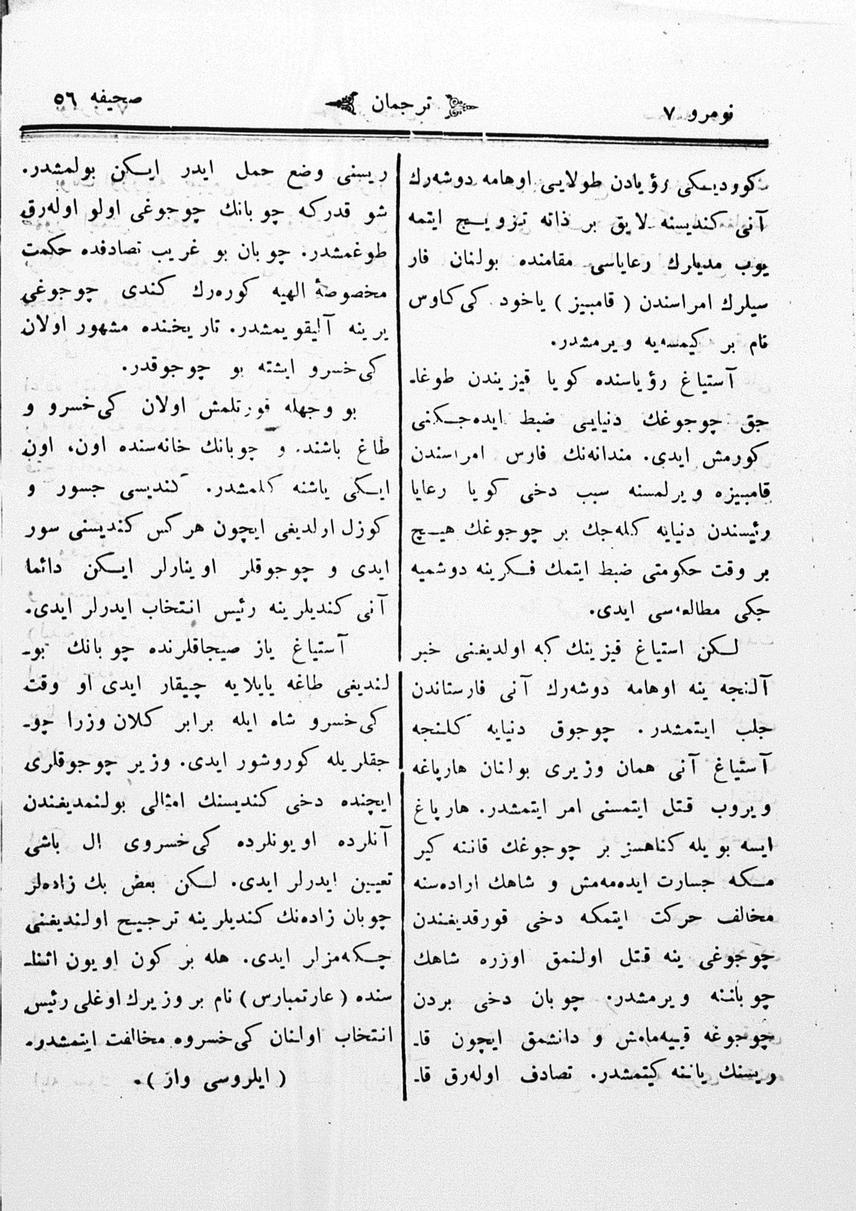 نومرو ٧
ترجمان
صحيفه ٥٦
كووديمكى رؤيادن طولايى اوهامه دوشه‌رك
آنى كنديسنه لايق بر ذاته تيزويج ايتمه
يوب مديارك رعاياسى مقامنده بولنان فار
سيلرك امراسندن ( قامبيز ) ياخود كى‌كاوس
نام بر كيمسه‌يه ويرمشدر.
آستياغ رؤياسنده كويا قيزيندن طوغاـ
جق چوجوغك دنيايى ضبط ايده‌جكنى
كورمش ايدى. مندانه‌نك فارس امراسندن
قامبيزه ويرلمسنه سبب دخى كويا رعايا
رئيسندن دنيايه كله‌جك بر چوجوغك هيچ
بر وقت حكومتى ضبط ايتمك فكرينه دوشميه
جكى مطالعه‌سى ايدى.
لكن استياغ قيزينك كبه اولديغنى خبر
آلنجه ينه اوهامه دوشه‌رك آنى فارستاندن
جلب ايتمشدر. چوجوق دنيايه كلنجه
آستياغ آنى همان وزيرى بولنان هارپاغه
ويروب قتل ايتمسنى امر ايتمشدر. هارپاغ
ايسه بويله كناهسز بر چوجوغك قاننه كير
مكه جسارت ايده‌مه‌مش و شاهك اراده‌سنه
مخالف حركت ايتمكه دخى قورقديغندن
چوجوغى ينه قتل اولنمق اوزره شاهك
چوباننه ويرمشدر. چوبان دخى بردن
چوجوغه قييه‌مامش و دانشمق ايچون قاـ
ريسنك ياننه كيتمشدر. تصادف اوله‌رق قاـ
ريسنى وضع حمل ايدر ايكن بولمشدر.
شو قدركه چوبانك چوجوغى اولو اوله‌رق
طوغمشدر. چوبان بو غريب تصادفده حكمت
مخصوصهٔ الهيه كوره‌رك كندى چوجوغى
يرينه آليقويمشدر. تاريخنده مشهور اولان
كى‌خسرو ايشته بو چوجوقدر.
بو وجهله قورتلمش اولان كى‌خسرو و
طاغ باشنده و چوبانك خانه‌سنده اون، اون
ايكى ياشنه كلمشدر. كنديسى جسور و
كوزل اولديغى ايچون هركس كنديسنى سور
ايدى و چوجوقلر اوينارلر ايكن دائما
آنى كنديلرينه رئيس انتخاب ايدرلر ايدى.
آستياغ ياز صيجاقلرنده چوبانك بوـ
لنديغى طاغه يايلايه چيقار ايدى او وقت
كى‌خسرو شاه ايله برابر كلان وزرا چوـ
جقلريله كوروشور ايدى. وزير چوجوقلرى
ايچنده دخى كنديسنك امثالى بولنمديغندن
آنلرده اويونلرده كى‌خسروى ال باشى
تعيين ايدرلر ايدى. لكن بعض بك زاده‌لر
چوبان زاده‌نك كنديلرينه ترجيح اولنديغنى
چكه‌مزلر ايدى. هله بر كون اويون اثناـ
سنده ( عارتمبارس ) نام بر وزيرك اوغلى رئيس
انتخاب اولنان كى‌خسروه مخالفت ايتمشدر.
( ايلروسى واز ).